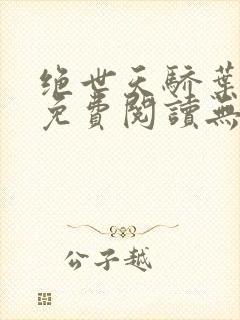 绝世天骄葉
免費閱讀無
公子越